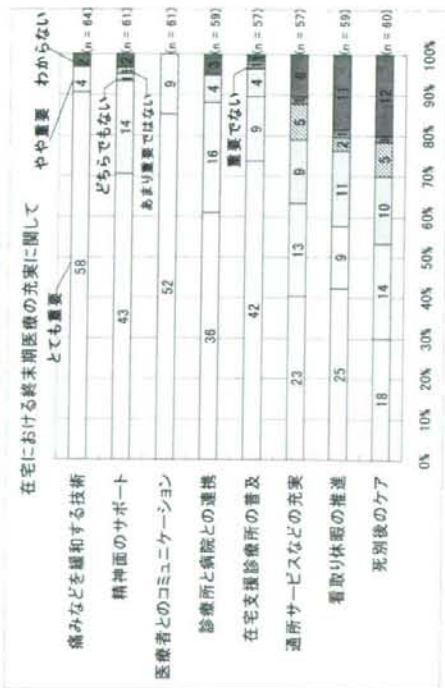 在宅における終末期医療の充実に関して
とても重要
やや重要
わからない
どちらでもない
あまり重要ではない
重要でない
痛みなどを緩和する技術 58 4 2 (n = 64)
精神面のサポート 43 14 1 1 2 (n = 61)
医療者とのコミュニケーション 52 9 (n = 61)
診療所と病院との連携 36 16 4 3 (n = 59)
在宅支援診療所の普及 42 9 4 1 1 (n = 57)
通所サービスなどの充実 23 13 9 5 6 (n = 57)
看取り休暇の推進 25 9 11 2 1 11 (n = 59)
死別後のケア 18 14 10 5 12 (n = 60)
0% 10% 20% 30% 40% 50% 60% 70% 80% 90% 100%